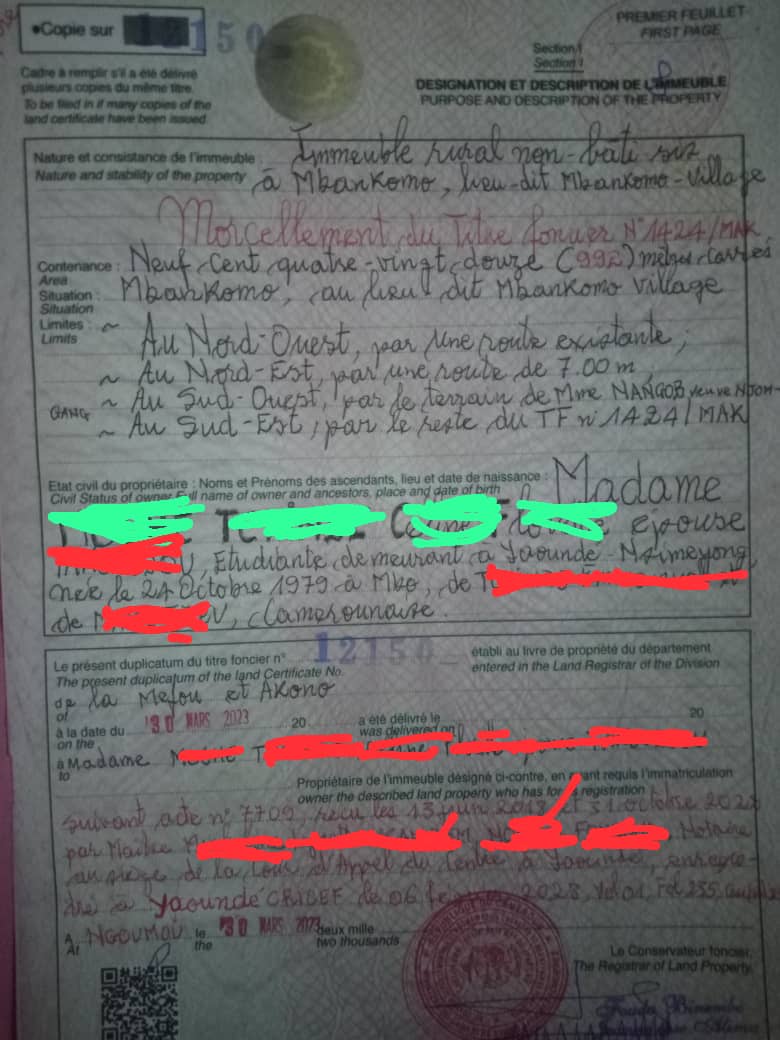 PREMIER FEUILLET
FIRST PAGE
•Copie sur
12150
Section I
Section I
Cadre à remplir s'il a été délivré
plusieurs copies du même titre.
To be filed in if many copies of the
land certificate have been issued
DESIGNATION ET DESCRIPTION DE L'IMMEUBLE
PURPOSE AND DESCRIPTION OF THE PROPERTY
Nature et consistance de l'immeuble : Immeuble rural non-bâti sis
Nature and stability of the property à Mbankomo, lieu-dit Mbankomo-Village
Morcellement du Titre foncier N°1424/MAK
Contenance : Neuf Cent quatre-vingt douze (992) mètres carrés
Area
Situation : Mbankomo, au lieu dit Mbankomo Village
Situation
Limites : ~ Au Nord-Ouest, par une route existante ;
Limits
~ Au Nord-Est, par une route de 7.00 m,
~ Au Sud-Ouest, par le terrain de Mme NANGOB veuve NJOM-
GANG ~ Au Sud-Est, par le reste du TF n°1424/MAK
Etat civil du propriétaire : Noms et Prénoms des ascendants, lieu et date de naissance : Madame
Civil Status of owner Full name of owner and ancestors, place and date of birth
épouse
, Etudiante demeurant à Yaoundé-Nsimeyong,
née le 24 Octobre 1979 à Mbo, de
de , Camerounaise.
Le présent duplicatum du titre foncier n° 12150 établi au livre de propriété du département
The present duplicatum of the land Certificate No. entered in the Land Registrar of the Division
de la Mefou et Akono
of
à la date du 30 MARS 2023 20 a été délivré le 20
on the was delivered on
à Madame
to
Propriétaire de l'immeuble désigné ci-contre, en ayant requis l'immatriculation
owner the described land property who has for registration
Suivant acte n° 7709, reçu les 13 juin 2018 et 31 octobre
par Maître Notaire
au siège de la Cour d'Appel du Centre à Yaoundé, enregis-
tré à Yaoundé CRIBEF le 06 2023, Vol 01, Fol 235,
A NGOUMOU le 30 MARS 2023 deux mille
At the two thousands
Le Conservateur foncier,
The Registrar of Land Property,